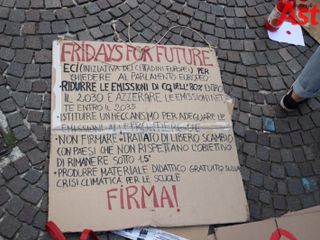 Ast
FRIDAYS FOR FUTURE
ECI (INIZIATIVA DEI CITTADINI EUROPEI) PER
CHIEDERE AL PARLAMENTO EUROPEO
- RIDURRE LE EMISSIONI DI CO2 DELL'80% ENTRO
IL 2030 E AZZERARE LE EMISSIONI NETTE
ENTRO IL 2035
- ISTITUIRE UN MECCANISMO PER ADEGUARE LE
EMISSIONI ALLE FRONTIERE
- NON FIRMARE TRATTATO DI LIBERO SCAMBIO
CON PAESI CHE NON RISPETTANO L'OBIETTIVO
DI RIMANERE SOTTO 1.5°
- PRODURRE MATERIALE DIDATTICO GRATUITO SULLA
CRISI CLIMATICA PER LE SCUOLE
FIRMA!